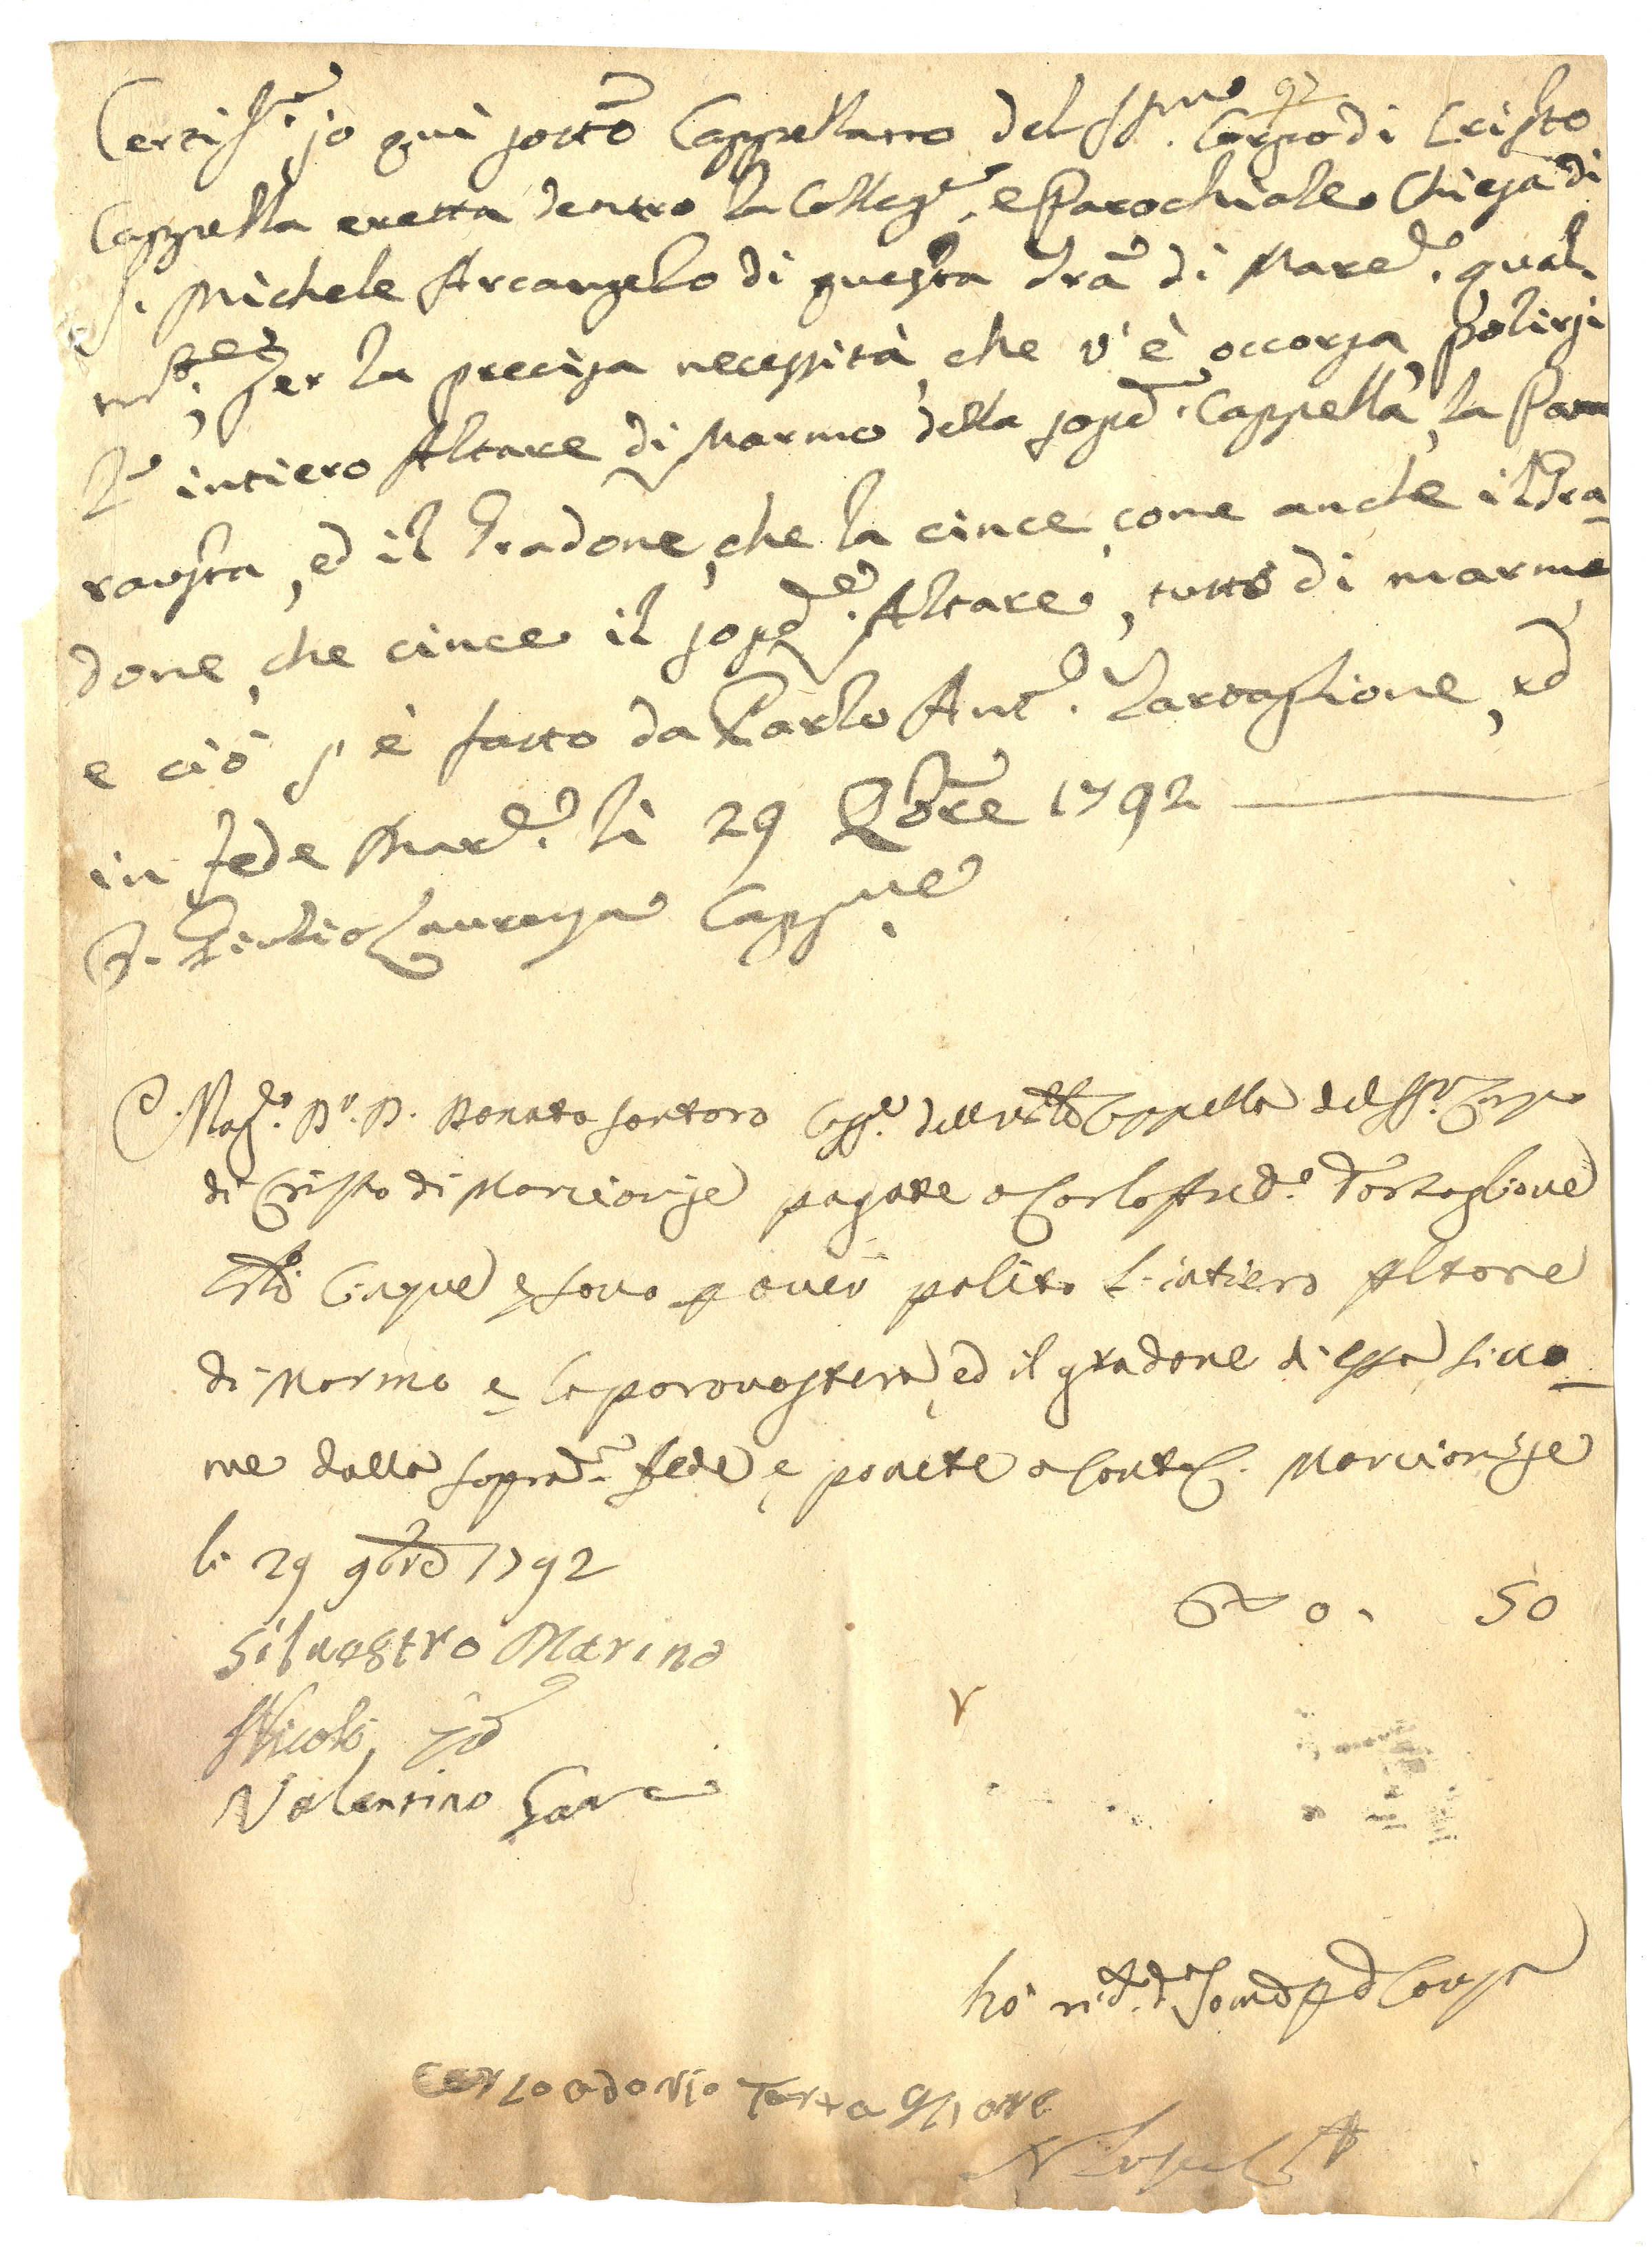 97
Certif.co io quì sotto Cappellano del SS.mo Corpo di Cristo
Cappella eretta dentro la Colleg.ta, e Parochiale Chiesa di
S. Michele Arcangelo di questa Trã di Marc.e qual-
m.te per la precisa necessità, che v'è occorsa, polirsi
L' intiero Altare di Marmo della sopd.a Cappella, la Pa
raustra, ed il Gradone, che la cince, come anche il Gra-
done, che cince il sopd.o Altare, tutto di marmo,
e ciò s'è fatto da Carlo Ant.o Tartaglione, ed
in fede Marc.e li 29 9bre 1792
D. Giulio Laurenza Capp.no
Mag.co D.r D. Donato Santoro Cass.re della Cappella del SS.mo Corpo
di Cristo di Marcianise pagate a Carlo Tartaglione
Cinque e sono p aver polito l'intiero Altare
di Marmo e la paravostera, ed il gradone di essa, sicco-
me dalla soprad.a fede, e ponete a conto. Marcianise
li 29 9bre 1792
0. 50
Silvestro Marino
Nicola
Valentino
hò ric.to d.a Somã p d.a Causa
Carlo adonio Tartaglione